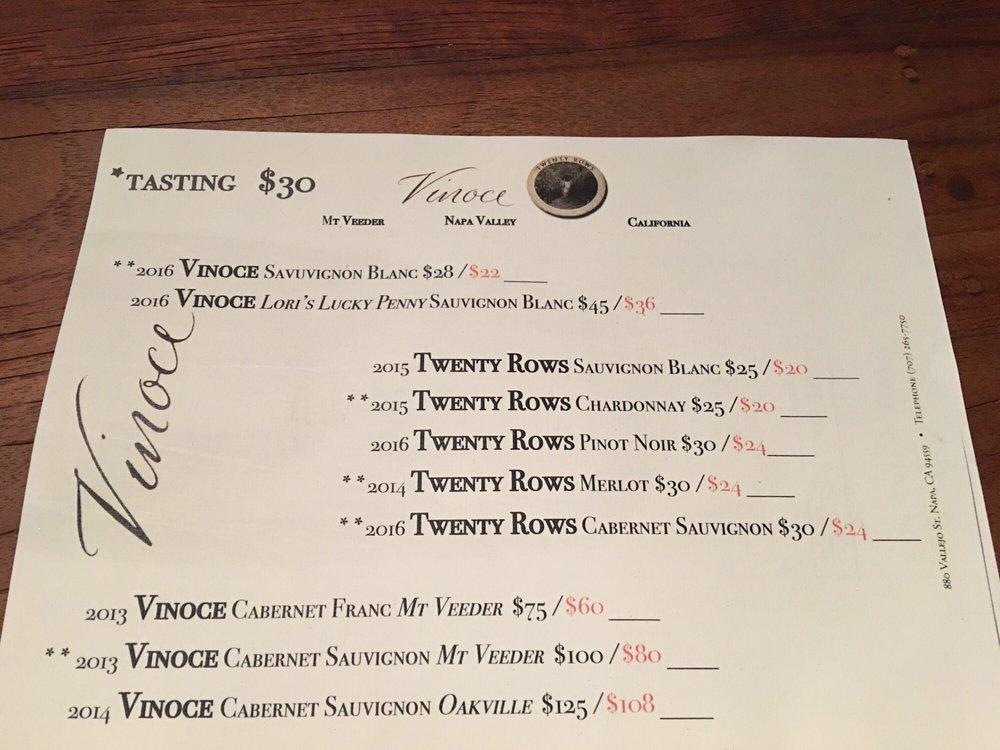 *TASTING $30
Vinoce
TWENTY ROWS
MT VEEDER NAPA VALLEY CALIFORNIA
**2016 VINOCE SAVUVIGNON BLANC $28/$22 ____
2016 VINOCE LORI'S LUCKY PENNY SAUVIGNON BLANC $45/$36 ____
2015 TWENTY ROWS SAUVIGNON BLANC $25/$20 ____
**2015 TWENTY ROWS CHARDONNAY $25/$20 ____
2016 TWENTY ROWS PINOT NOIR $30/$24____
**2014 TWENTY ROWS MERLOT $30/$24 ____
**2016 TWENTY ROWS CABERNET SAUVIGNON $30/$24 ____
Vinoce
2013 VINOCE CABERNET FRANC MT VEEDER $75/$60____
**2013 VINOCE CABERNET SAUVIGNON MT VEEDER $100/$80____
2014 VINOCE CABERNET SAUVIGNON OAKVILLE $125/$108 ____
880 VALLEJO ST. NAPA, CA 94559 • TELEPHONE (707) 265-7750